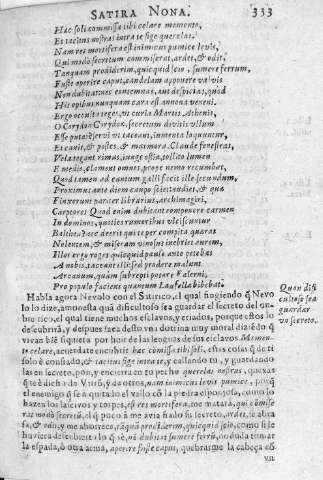 SATIRA NONA. 333
Hæc soli commissa tibi celare memento,
Et tacitus nostras intra te fige querelas.
Nam res mortifera est inimicus pumice levis,
Qui modo secretum commiserat, ardet, & odit.
Tanquam prodiderim, quicquid scio, sumere ferrum,
Fuste aperire caput, candelam apponere valvis
Non dubitat nec contemnas, aut despicias, quod
His opibus nunquam cara est annona veneni.
Ergo occulta teges, ut curia Martis Athenis,
O Corydon Corydon, secretum divitis ullum
Esse putas? servi ut taceant, iumenta loquuntur,
Et canis, & postes, & marmora. Claude fenestras,
Vela tegant rimas, iunge ostia, tollito lumen
E medio, clament omnes, prope nemo recumbat,
Quod tamen ad cantum galli facit ille secundum,
Proximus ante diem caupo sciet, audiet, & quæ
Finxerunt pariter librarius, archimagiri,
Carptores Quod enim dubitant componere carmen
In dominos, quoties rumoribus ulciscantur
Baltheos? nec deerit qui te per compita quærat
Nolentem, & miseram vinosus inebriet aurem,
Illos ergo roges quicquid paulo ante petebas
A nobis, taceant illi sed prodere malunt
Arcanum, quàm subrepti potare Falerni,
Pro populo faciens quantum Laufella bibebat.
Habla agora Nevolo con el Satirico, el qual fingiendo q̃ Nevo
lo lo dize, amonesta quã dificultoso sea guardar el secreto del
bre rico, el qual tiene muchos esclavos, y criados, porque estos lo
descubrirã, y despues saca desto vna doctrina muy moral
vivan biẽ siquiera por huir de las lenguas de sus esclavos. Memen-
to celare, acuerdate encubrir hæc commissa tibi soli, estas cosas q̃ de ti
solo è confiado, & tacitus fige intra te, y callando tu, y guardando
las en secreto, pon, y encierra en tu pecho querelas nostras, quexas
el enemigo q̃ se à quitado el vallo cõ la piedra esponjosa, como lo
fa, & odit, y me aborrece,
huviera descubierto lo q̃ sè,
la espada, ò otra arma, aperire fuste caput, quebrarme la cabeça cõ
vn
Quan difi
cultoso sea
guardar
vn secreto.